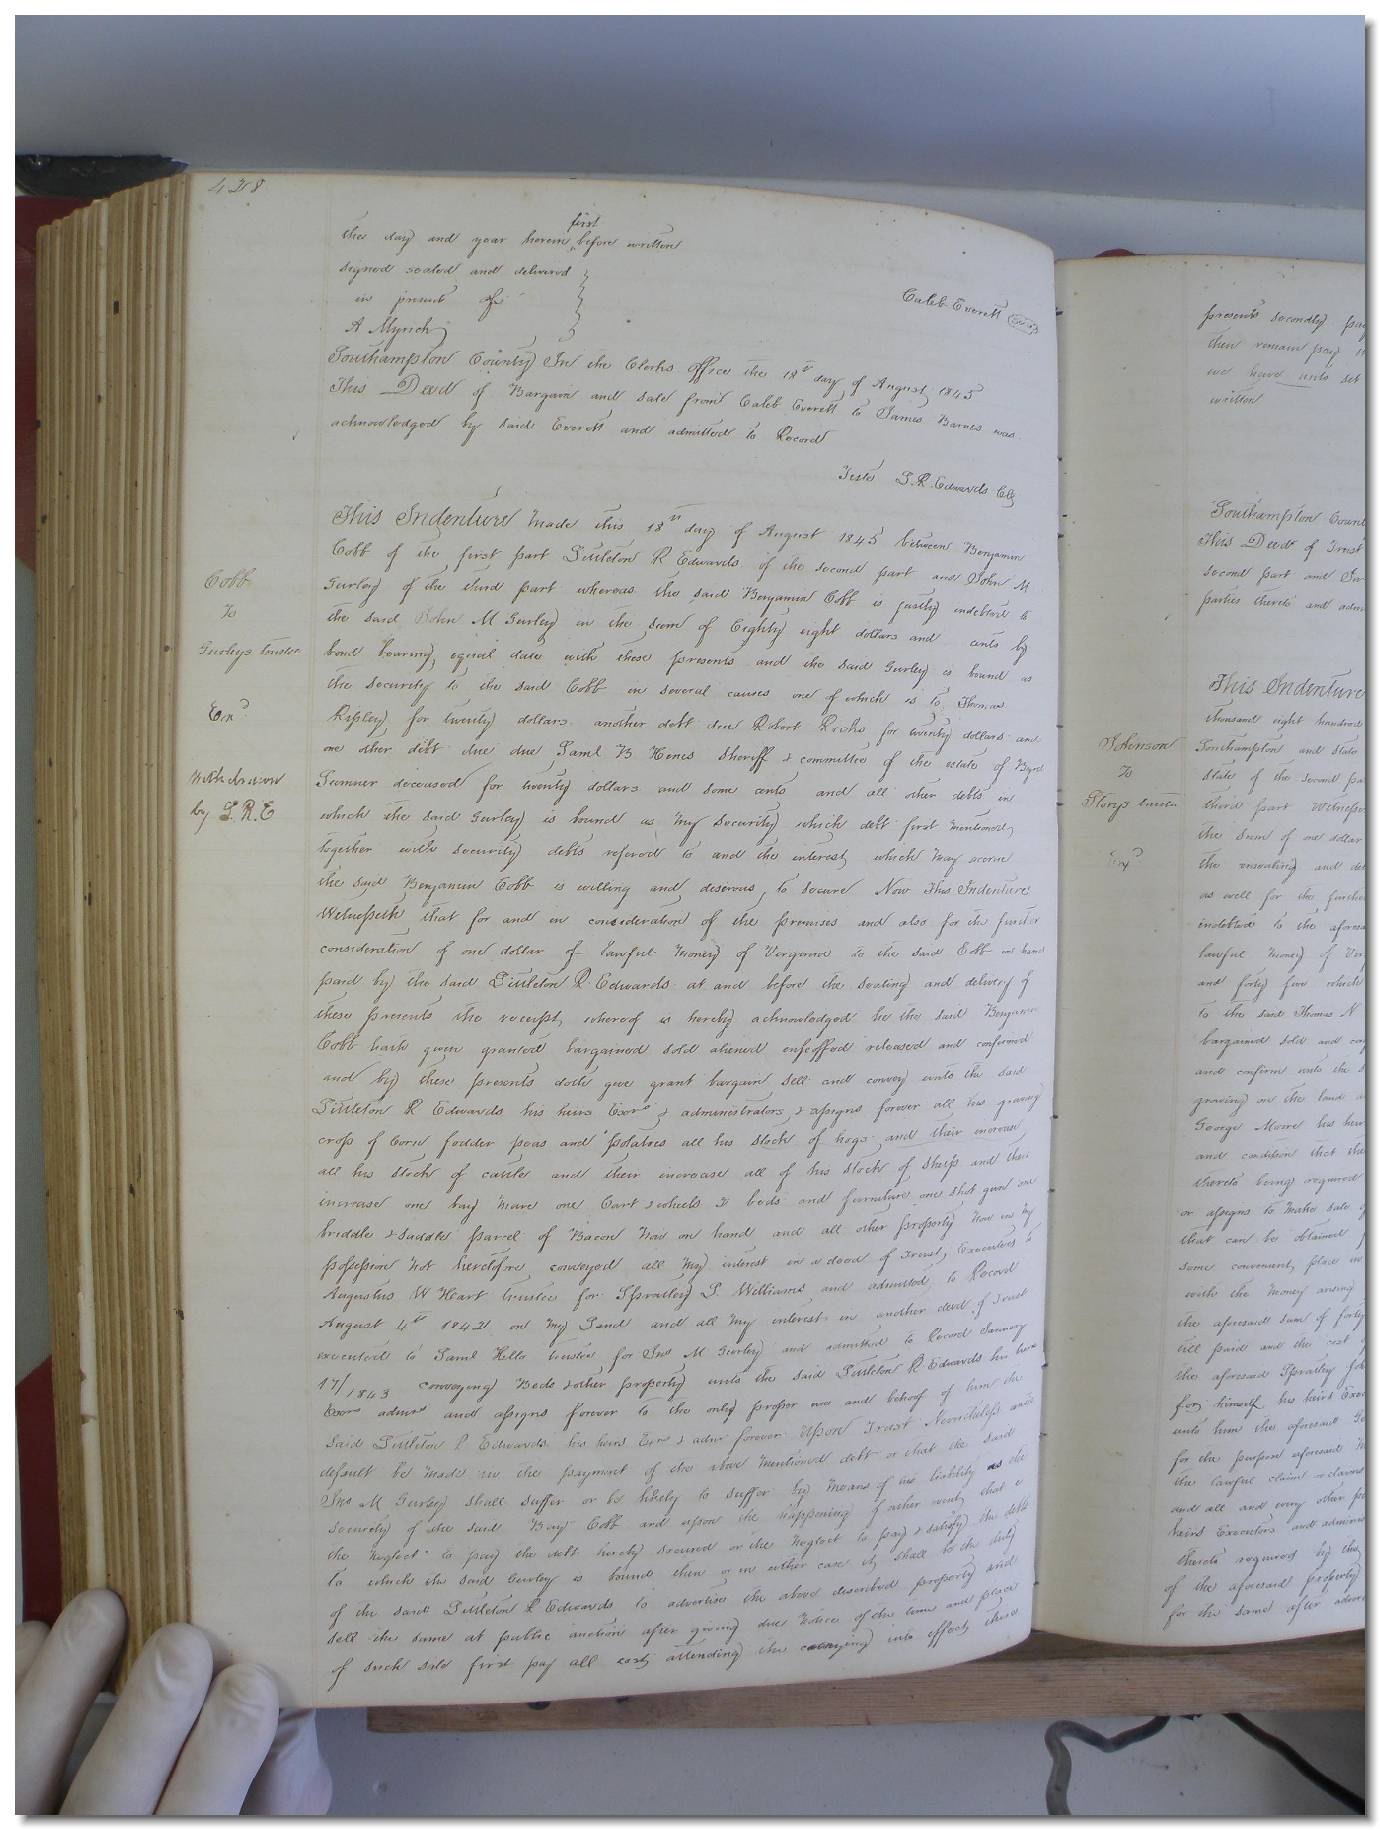 428
first
the day and year herein ^ before written
signed sealed and delivered
in present of
A Myrick
Caleb Everett
Southampton County In the Clerks office the 18th day of August 1845
This Deed of Bargain and Sale from Caleb Everett to James Barnes was
acknowledged by said Everett and admitted to Record
Teste L. R. Edwards Clk
Cobb
To
Gurleys trustee
Exd
Withdrawn
by L. R. E
This Indenture Made this 18th day of August 1845 between Benjamin
Cobb of the first part Littleton R Edwards of the second part and John M
Gurley of the third part whereas the said Benjamin Cobb is justly indebted to
the said John M Gurley in the sum of Eighty eight dollars and cents by
bond bearing equal date with these presents and the said Gurley is bound as
the security to the said Cobb in several causes one of which is to Thomas
Ripley for twenty dollars another debt due Robert Ricks for twenty dollars and
one other debt due due Saml B Hines Sheriff & committee of the estate of
Sumner deceased for twenty dollars and some cents and all other debts in
which the said Gurley is bound as my security which debt first mentioned
together with security debts refered to and the interest which may accrue
the said Benjamin Cobb is willing and desirous to secure Now This Indenture
Witnesseth that for and in consideration of the premises and also for the further
consideration of one dollar of lawful money of Virginia to the said Cobb in hand
paid by the said Littleton R Edwards at and before the sealing and delivery of
these presents the receipt whereof is hereby acknowledged he the said Benjamin
Cobb hath given granted bargained sold aliened enfeoffed released and confirmed
and by these presents doth give grant bargain sell and convey unto the said
Littleton R Edwards his heirs Exors & administrators & assigns forever all his growing
crop of Corn fodder peas and Potatoes all his stock of hogs and their increase
all his stock of cattle and their increase all of his stock of Sheep and their
increase one bay mare one Cart & wheels beds and furniture one shot gun one
briddle & saddle parcel of Bacon now on hand and all other property now in my
possession not heretofore conveyed all my interest in a deed of Trust Executed to
Augustus W Heart trustee for Spratley L. Williams and admitted to Record
August 4th 1842 on my Land and all my interest in another deed of Trust
executed to Saml Kello trustee for Jno M Gurley and admitted to Record January
17/1843 conveying Beds & other property unto the said Littleton R Edwards his heirs
Exors admrs and assigns forever to the only proper use and behoof of him the
said Littleton R Edwards his heirs Exrs & admr forever Upon Trust Nevertheless and if
default be made in the payment of the above mentioned debt or that the said
Jno M Gurley shall suffer or be likely to suffer by means of his liability as the
security of the said Benj Cobb and upon the happening of either event that is
the neglect to pay the debt hereby secured or the neglect to pay & satisfy the debts
to which the said Gurley is bound then or in either case it shall be the duty
of the said Littleton R Edwards to advertise the above described property and
sell the same at public auction after giving due notice of the time and place
of such sale first pay all cost attending the carrying into effect these
presents secondly pay
then remain pay
we have unto set
written
Southampton Count
This Deed of Trust
second part and
parties thereto and adm
Johnson
To
trustee
Exd
This Indenture
thousand eight hundred
Southampton and State
State of the second pa
third part Witnesse
the sum of one dollar
the ensealing and del
as well for the further
indebted to the aforesa
lawful money of Vir
and forty five which
to the said Thomas N
bargained sold and con
and confirm unto the s
growing on the land
George Moore his heir
and condition that the
thereto being required
or assigns to make sale of
that can be obtained
some convenient place in
with the money arising
the aforesaid sum of forty
till paid and the cost of
the aforesaid Spratley
for himself his heirs Exec
unto him the aforesaid Ge
for the purpose aforesaid
the lawful claim or claims
and all and every other pe
heirs Executors and adminis
thereto required by the
of the aforesaid property
for the same after adver